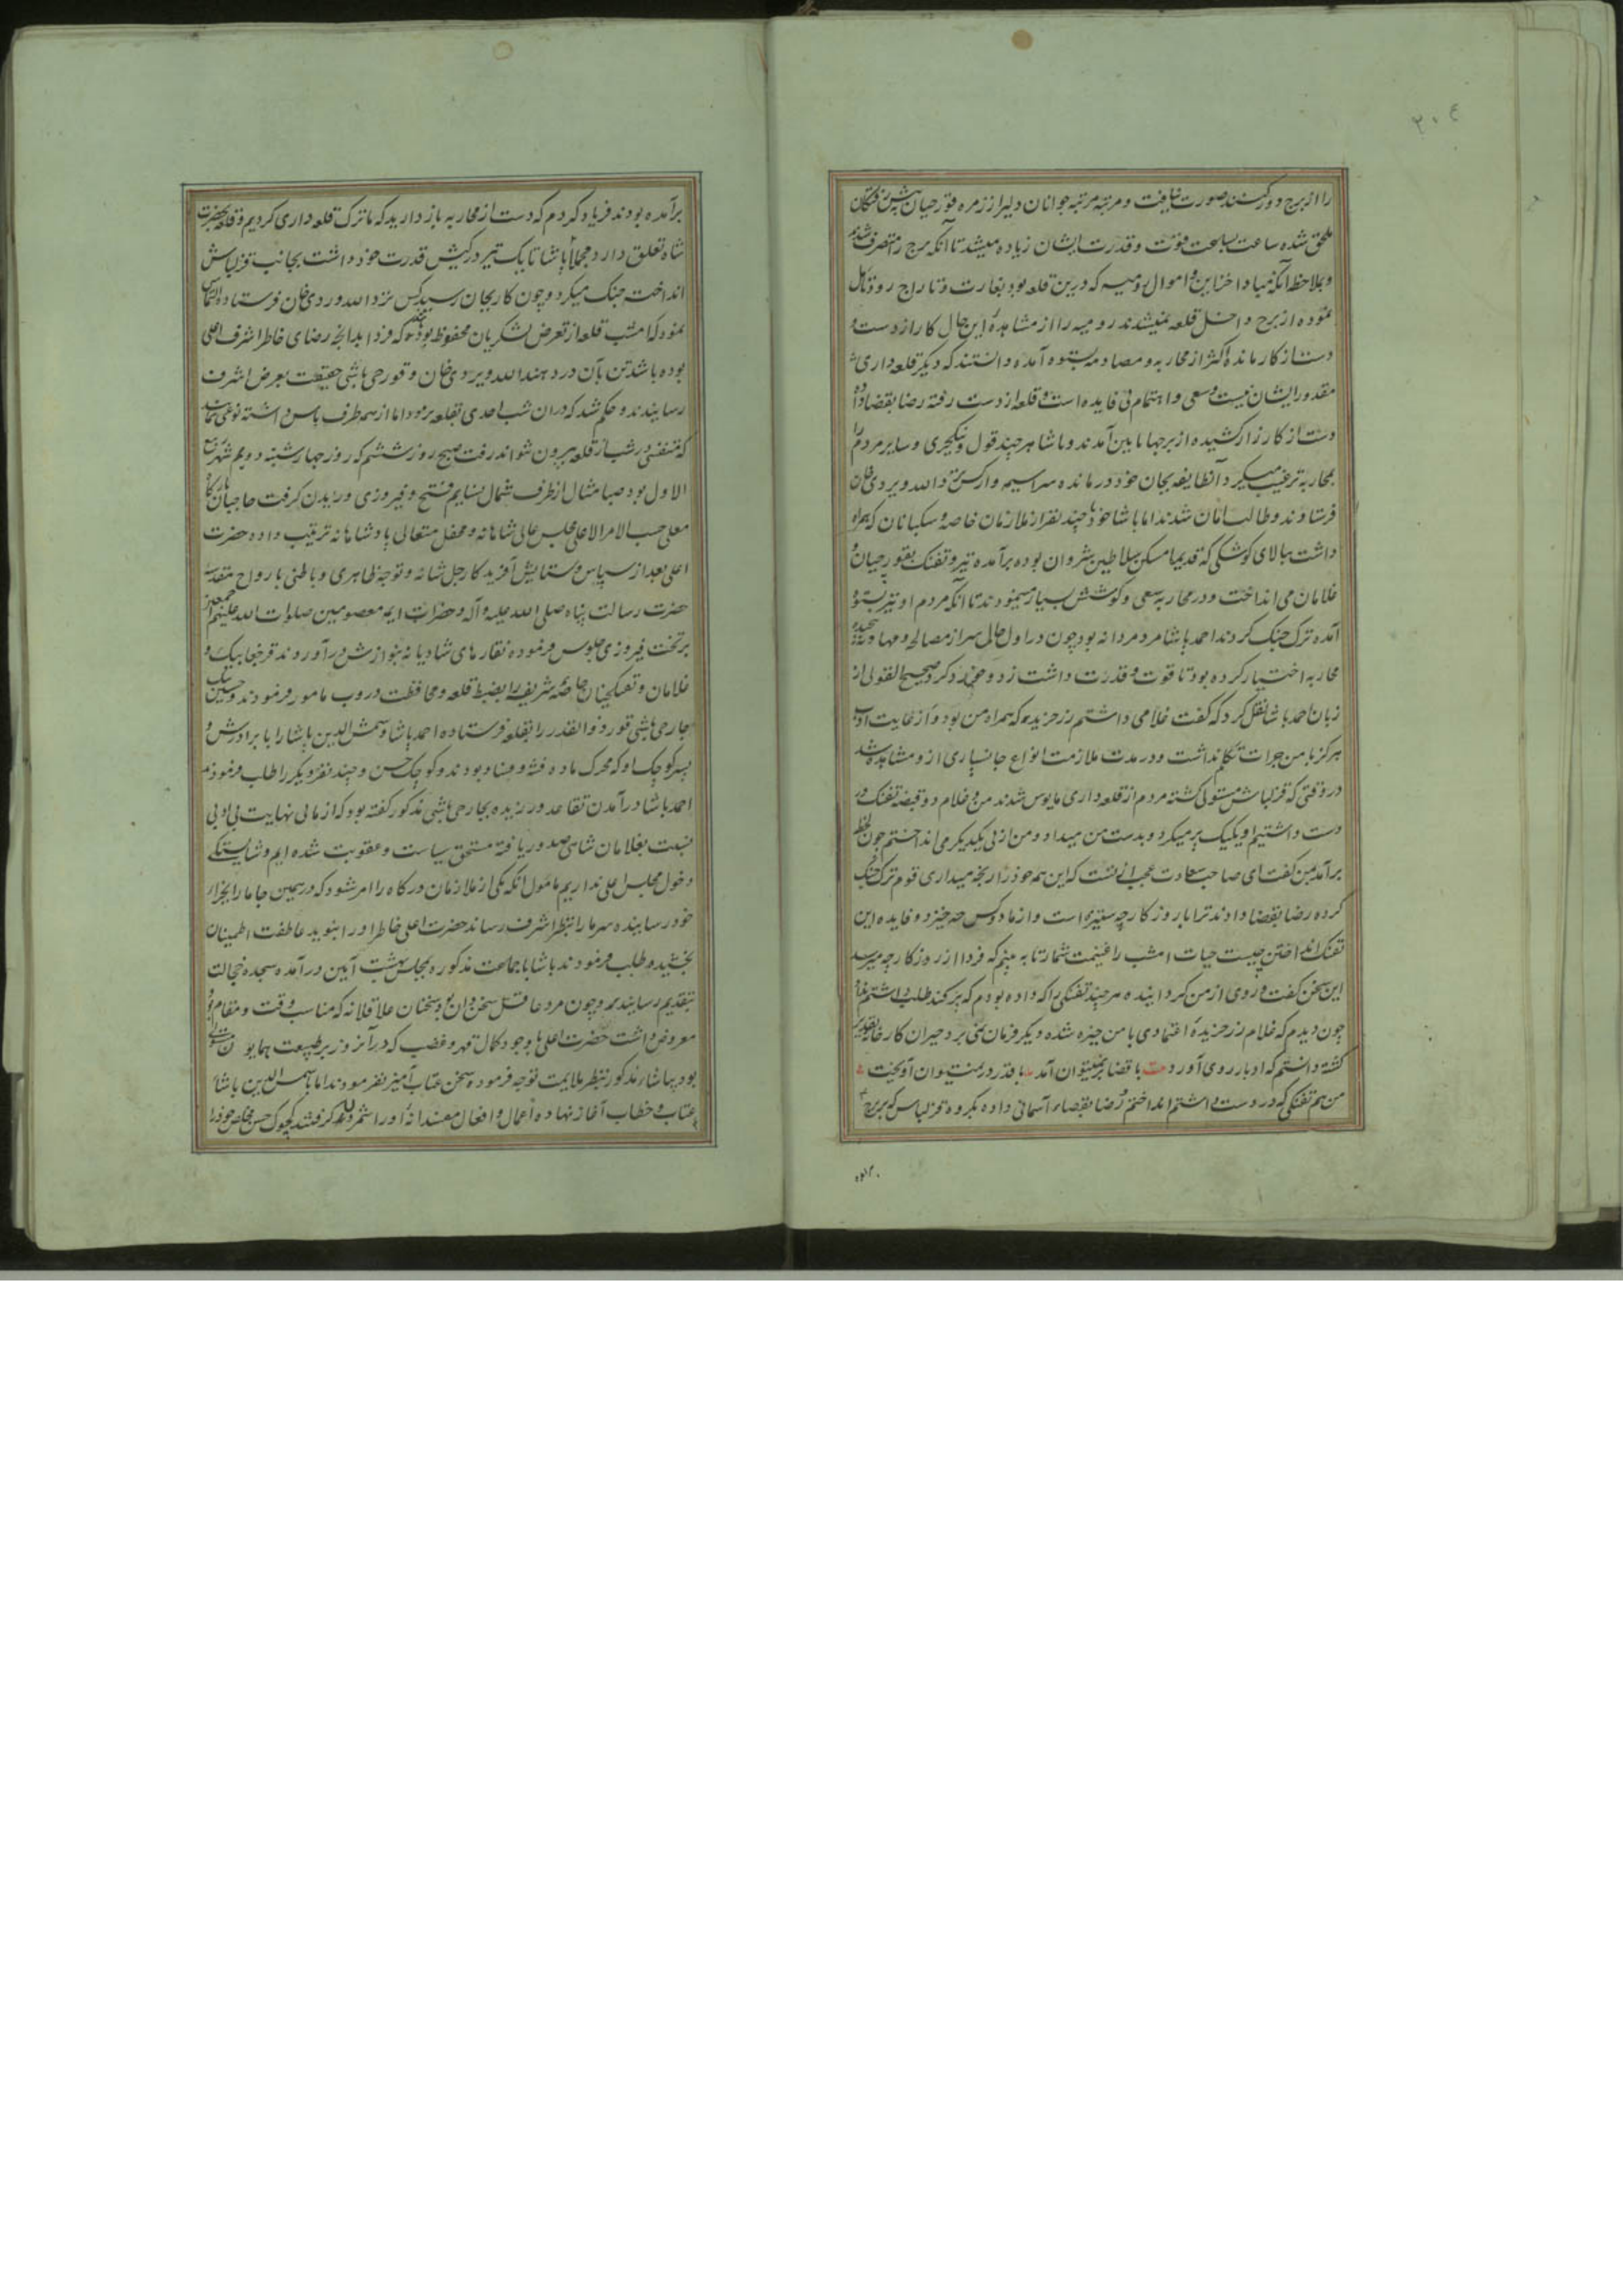 ٢٠٤
را از برج دور کنند صورت نیافت و مرتبه مرتبه جوانان دلیر از زمره قورچیان پیش رفتکان
ملحق شده ساعت بساعت قوت و قدرت ایشان زیاده میشد تا آنکه برج را متصرف شدند
و بملاحظه آنکه مبادا خزاین و اموال رومیه که درین قلعه بود بغارت و تاراج رود تامل
نموده از برج داخل قلعه نمیشدند رومیه را از مشاهده این حال کار از دست و
دست از کار مانده اکثر از محاربه و مصادمه بستوه آمده دانستند که دیگر قلعه داری
مقدور ایشان نیست و سعی و اهتمام بی فایده است و قلعه از دست رفته رضا بقضا داده
دست از کارزار کشیده از برجها پایین آمدند و پاشا هر چند قول و ینکچری و سایر مردم را
بمحاربه ترغیب میکرد آنطایفه بجان خود درمانده سراسیمه وار کس نزد الله ویردی خان
فرستادند و طالب امان شدند اما پاشا خود با چند نفر از ملازمان خاصه و سکبانان که همراه
داشت ببالای کوشکی که قدیما مسکن سلاطین شروان بوده برآمده تیر و تفنک بقورچیان و
غلامان می انداخت و در محاربه سعی و کوشش بسیار مینمودند تا آنکه مردم او نیز بستوه
آمده ترک جنک کردند احمد پاشا مرد مردانه بود چون در اول حال سر از مصالحه و مهادنه پیچیده
محاربه اختیار کرده بود تا قوت و قدرت داشت زد و خورد کرد صحیح القولی از
زبان احمد پاشا نقل کرد که گفت غلامی داشتم زرخریده که همراه من بود و از غایت ادب
هرگز با من جرات تکلم نداشت و در مدت ملازمت انواع جانسپاری ازو مشاهده شد
در وقتی که قزلباش مستولی گشته مردم از قلعه داری مایوس شدند من و غلام دو قبضه تفنک در
دست داشتیم او یکیک پر میکرد و بدست من میداد و من از پی یکدیگر می انداختم چون لحظه
برآمد بمن گفت ای صاحب سعادت عجبا نیست که این همه خود را رنجه میداری قوم ترک جنک
کرده رضا بقضا دادند ترا با روزگار چه ستیزه است و از ما دو کس چه خیزد و فایده این
تفنک انداختن چیست حیات امشب را غنیمت شمار تا ببینم که فردا از روزگار چه میرسد
این سخن گفت و روی از من گردانیده هر چند تفنکی را که داده بودم که پر کند طلب داشتم نداد
چون دیدم که غلام زرخریده اعتمادی با من چیره شده دیگر فرمان نمی برد حیران کارخانه تقدیر
گشته دانستم که ادبار روی آورد بیت با قضا بر نمیتوان آمد با قدر در نمیتوان آویخت
من هم تفنکی که در دست داشتم انداختم و رضا بقضاء آسمانی داده بگروه قزلباش که ببرج
برآمده
برآمده بودند فریاد کردم که دست از محاربه باز دارید که ما ترک قلعه داری کردیم و قلعه بحضرت
شاه تعلق دارد مجملا پاشا تا یک تیر در کیش قدرت خود داشت بجانب قزلباش
انداخت جنک میکرد و چون کار بجان رسید کس نزد الله وردی خان فرستاده التماس
نمود که امشب قلعه از تعرض لشکریان محفوظ بوده که فردا بدانچه رضای خاطر اشرف اعلی
بوده باشد تن بآن در دهند الله ویردی خان و قورچی باشی حقیقت بعرض اشرف
رسانیدند و حکم شد که در ان شب احدی بقلعه نرود اما از همه طرف پاس داشته نوعی نمایند
که متنفسی در شب از قلعه بیرون نتواند رفت صبح روز ششم که روز چهارشنبه دویم شهر ربیع
الاول بود صبا مثال از طرف شمال نسایم فتح و فیروزی وزیدن گرفت حاجبان بارگاه
معلی حسب الامر الاعلی مجلس عالی شاهانه و محفل متعالی پادشاهانه ترتیب داده حضرت
اعلی بعد از سپاس و ستایش آفریدکار جل شانه و توجه ظاهری و باطنی بارواح مقدسه
حضرت رسالت پناه صلی الله علیه و آله و حضرات ایمه معصومین صلوات الله علیهم اجمعین
بر تخت فیروزی جلوس فرموده نقارهای شادیانه بنوازش درآوردند قرچغا بیک و
غلامان و تفنکچیان خاصه شریفه را بضبط قلعه و محافظت دروب مامور فرمودند و حسین بیک
جارچی باشی قورد ذوالقدر را بقلعه فرستاده احمد پاشا و شمش الدین پاشا را با برادرش و
پسر کوچک او که محرک ماده فتنه و فساد بودند و کوچک حسن و چند نفر دیگر را طلب فرمودند
احمد پاشا در آمدن تقاعد ورزیده بجارچی باشی مذکور گفته بود که از ما بی نهایت بی ادبی
نسبت بغلامان شاهی صدور یافته مستحق سیاست و عقوبت شده ایم و شایستکی
دخول مجلس اعلی نداریم مامول آنکه یکی از ملازمان درگاه را امر شود که در همین جا ما را بجزای
خود رسانیده سر ما را بنظر اشرف رساند حضرت اعلی خاطر او را بنوید عاطفت اطمینان
بخشیده طلب فرمودند پاشا با جماعت مذکوره بمجلس بهشت آیین درآمده سجده خجالت
بتقدیم رسانید و چون مرد عاقل سخن دان بود سخنان عاقلانه که مناسب وقت و مقام بود
معروض داشت حضرت اعلی با وجود کمال قهر و غضب که در آنروز بر طبیعت همایون مستولی
بود بپاشا مذکور بنظر ملایمت توجه فرموده سخن عتاب آمیز نفرمودند اما با شمس الدین پاشا
عتاب و خطاب آغاز نهاده اعمال و افعال مفسدانه او را شمردن گرفتند کوچک حسن